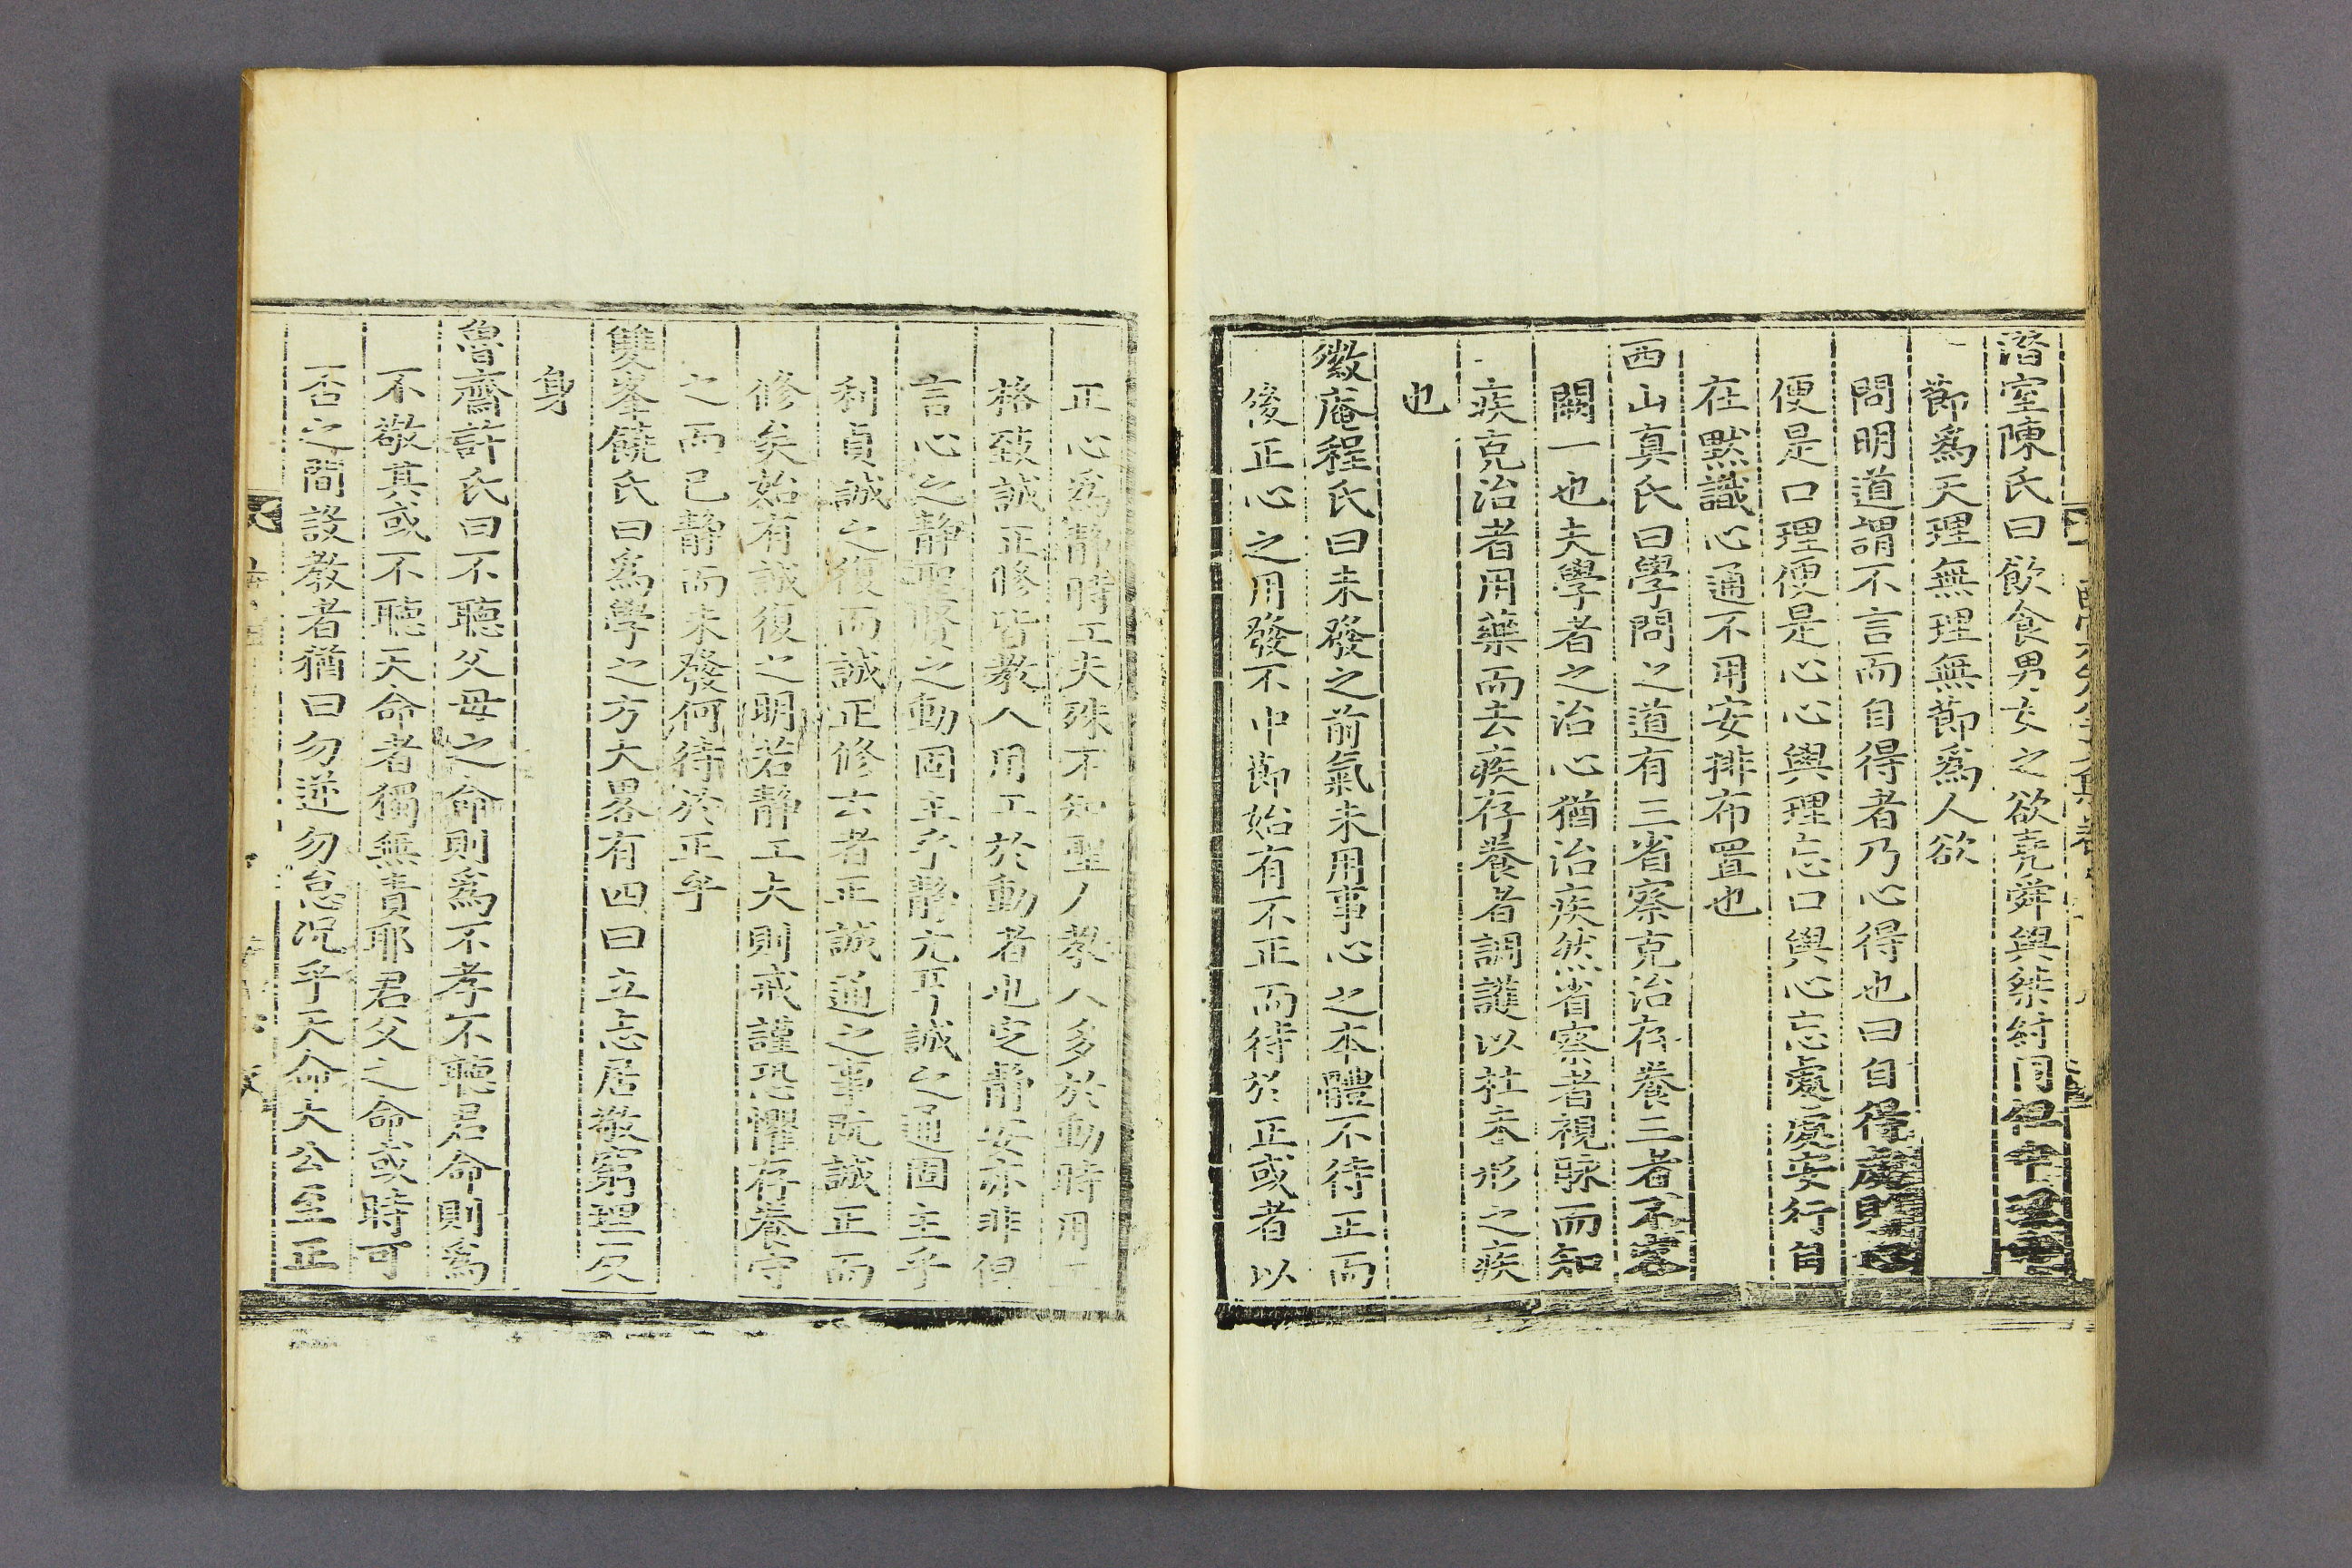 潛室陳氏曰飮食男女之欲堯舜與桀紂同但中理中
節爲天理無理無節爲人欲
問明道謂不言而自得者乃心得也曰自得處則心
便是口理便是心心與理忘口與心忘處處安行自
在默識心通不用安排布置也
西山真氏曰學問之道有三省察克治存養三者不容
闕一也夫學者之治心猶治疾然省察者視脉而知
疾克治者用藥而去疾存養者調護以杜未形之疾
也
徽庵程氏曰未發之前氣未用事心之本體不待正而
後正心之用發不中節始有不正而待於正或者以
正心爲靜時工夫殊不知聖人教人多於動時用工
格致誠正修皆教人用工於動者也定靜安亦非但
言心之靜聖賢之動固主乎靜元亨誠之通固主乎
利貞誠之復而誠正修云者正誠通之事旣誠正而
修矣始有誠復之明若靜工夫則戒謹恐懼存養守
之而已靜而未發何待於正乎
雙峯饒氏曰爲學之方大畧有四曰立志居敬窮理反
身
魯齋許氏曰不聽父母之命則爲不孝不聽君命則爲
不敬其或不聽天命者獨無責耶君父之命或時可
否之間設教者猶曰勿逆勿怠况乎天命大公至正